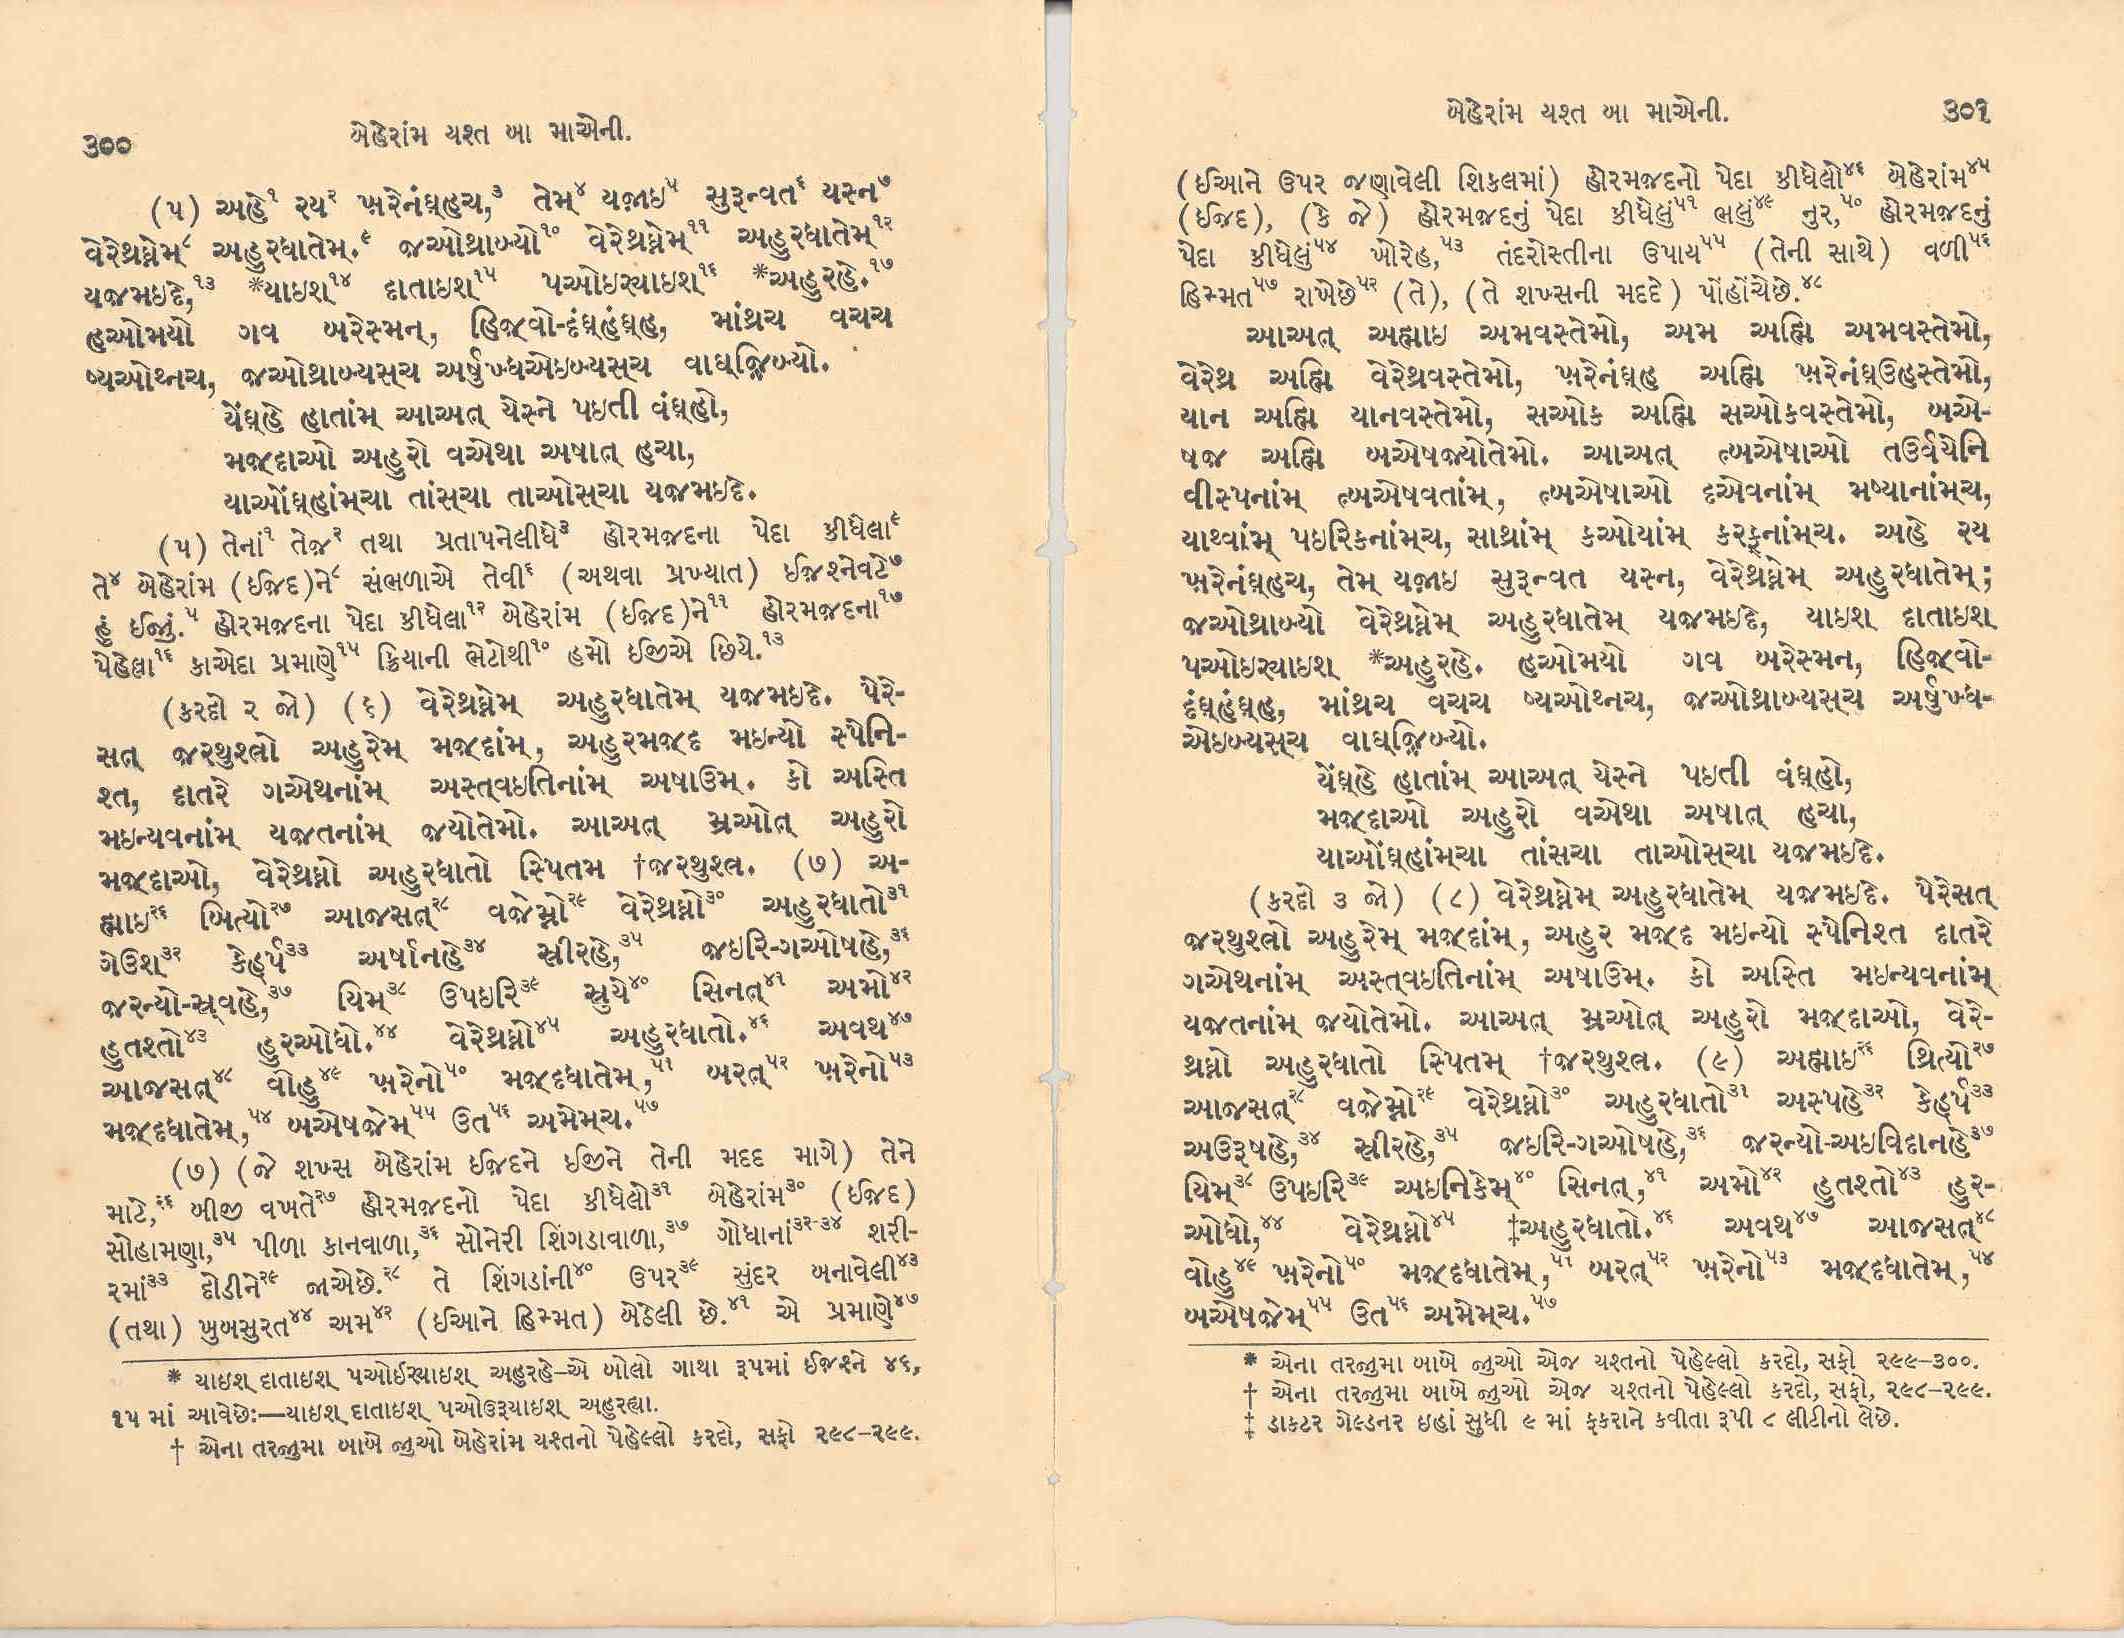 ૩૦૦
બેહેરાંમ યશ્ત બા માએની.
(૫) અહે૧ રય૨ ખ઼રેનંઘ્હ્ચ,૩ તેમ્૪ યજ઼ાઇ૫ સુરૂન્વત૬ યસ્ન૭
વેરેથ્રઘ્નેમ્૮ અહુરધાતેમ્.૯ જઓથ્રાબ્યો૧૦ વેરેથ્રઘ્નેમ્૧૧ અહુરધાતેમ્૧૨
યજમઇદે,૧૩ *યાઇશ્૧૪ દાતાઇશ્૧૫ પઓઇર્યાઇશ્૧૬ *અહુરહે.૧૭
હઓમયો ગવ બરેસ્મન્, હિજ઼્વો-દંઘ્હંઘ્હ, માંથ્રચ વચચ
ષ્યઓથ્નચ, જઓથ્રાબ્યસ્ચ અર્ષુખ્ધએઇબ્યસ્ચ વાઘ્જ઼િબ્યો.
યેંઘ્હે હાતાંમ્ આઅત્ યેસ્ને પઇતી વંઘ્હો,
મજ઼્દાઓ અહુરો વએથા અષાત્ હચા,
યાઓંઘ્હાંમ્ચા તાંસ્ચા તાઓસ્ચા યજમઇદે.
(૫) તેનાં૧ તેજ૨ તથા પ્રતાપનેલીધે૩ હોરમજ઼દના પેદા કીધેલા૯
તે૪ બેહેરાંમ (ઈજ઼દ)ને૮ સંભળાએ તેવી૬ (અથવા પ્રખ્યાત) ઈજ઼શ્નેવટે૭
હું ઈજું.૫ હોરમજ઼દના પેદા કીધેલા૧૨ બેહેરાંમ (ઈજ઼દ)ને૧૧ હોરમજ઼દના૧૭
પેહેલા૧૬ કાએદા પ્રમાણે૧૫ ક્રિયાની ભેટોથી૧૦ હમો ઈજીએ છિયે.૧૩
(કરદો ૨ જો) (૬) વેરેથ્રઘ્નેમ્ અહુરધાતેમ્ યજમઇદે. પેરે-
સત્ જ઼રથુશ્ત્રો અહુરેમ્ મજ઼્દાંમ્, અહુરમજ઼્દ મઇન્યો સ્પેનિ-
શ્ત, દાતરે ગએથનાંમ્ અસ્ત્વઇતિનાંમ્ અષાઉમ્. કો અસ્તિ
મઇન્યવનાંમ્ યજતનાંમ્ જ઼યોતેમો. આઅત્ મ્રઓત્ અહુરો
મજ઼્દાઓ, વેરેથ્રઘ્નો અહુરધાતો સ્પિતમ †જ઼રથુશ્ત્ર. (૭) અ-
હ્માઇ૨૬ બિત્યો૨૭ આજસત્૨૮ વજ઼ેમ્નો૨૯ વેરેથ્રઘ્નો૩૦ અહુરધાતો૩૧
ગેઉશ્૩૨ કેહ્ર્પ૩૩ અર્ષાનહે૩૪ સ્રીરહે,૩૫ જઇરિ-ગઓષહે,૩૬
જ઼રન્યો-સ્ર્વહે,૩૭ યિમ્૩૮ ઉપઇરિ૩૯ સ્રુયે૪૦ સિનત્૪૧ અમો૪૨
હુતશ્તો૪૩ હુરઓધો.૪૪ વેરેથ્રઘ્નો૪૫ અહુરધાતો.૪૬ અવથ૪૭
આજસત્૪૮ વોહુ૪૯ ખ઼રેનો૫૦ મજ઼્દધાતેમ્,૫૧ બરત્૫૨ ખ઼રેનો૫૩
મજ઼્દધાતેમ્,૫૪ બએષજ઼ેમ્૫૫ ઉત૫૬ અમેમ્ચ.૫૭
(૭) (જે શખ્સ બેહેરાંમ ઈજ઼દને ઈજીને તેની મદદ માગે) તેને
માટે,૨૬ બીજી વખતે૨૭ હોરમજ઼દનો પેદા કીધેલો૩૧ બેહેરાંમ૩૦ (ઈજ઼દ)
સોહામણા,૩૫ પીળા કાનવાળા,૩૬ સોનેરી શિંગડાવાળા,૩૭ ગોધાનાં૩૨-૩૪ શરી-
રમાં૩૩ દોડીને૨૯ જાએછે.૨૮ તે શિંગડાંની૪૦ ઉપર૩૯ સુંદર બનાવેલી૪૩
(તથા) ખુબસુરત૪૪ અમ૪૨ (ઈઆને હિમ્મત) બેઠેલી છે.૪૧ એ પ્રમાણે૪૭
* યાઇશ્ દાતાઇશ્ પઓઈર્યાઇશ્ અહુરહે-એ બોલો ગાથા રૂપમાં ઈજ઼શ્ને ૪૬,
૧૫ માં આવેછેઃ—યાઇશ્ દાતાઇશ્ પઓઉરૂયાઇશ્ અહુરહ્યા.
† એના તરજુમા બાબે જુઓ બેહેરાંમ યશ્તનો પેહેલ્લો કરદો, સફો ૨૯૮-૨૯૯.
બેહેરાંમ યશ્ત બા માએની.
૩૦૧
(ઈઆને ઉપર જણાવેલી શિકલમાં) હોરમજ઼દનો પેદા કીધેલો૪૬ બેહેરાંમ૪૫
(ઈજ઼દ), (કે જે) હોરમજ઼દનું પેદા કીધેલું૫૧ ભલું૪૯ નુર,૫૦ હોરમજ઼દનું
પેદા કીધેલું૫૪ ખોરેહ,૫૩ તંદરોસ્તીના ઉપાય૫૫ (તેની સાથે) વળી૫૬
હિમ્મત૫૭ રાખેછે૫૨ (તે), (તે શખ્સની મદદે) પોંહોંચેછે.૪૮
આઅત્ અહ્માઇ અમવસ્તેમો, અમ અહ્મિ અમવસ્તેમો,
વેરેથ્ર અહ્મિ વેરેથ્રવસ્તેમો, ખ઼રેનંઘ્હ અહ્મિ ખ઼રેનંઘ્ઉહસ્તેમો,
યાન અહ્મિ યાનવસ્તેમો, સઓક અહ્મિ સઓકવસ્તેમો, બએ-
ષજ઼ અહ્મિ બએષજ઼્યોતેમો. આઅત્ ત્બએષાઓ તઉર્વયેનિ
વીસ્પનાંમ્ ત્બએષવતાંમ્, ત્બએષાઓ દએવનાંમ્ મષ્યાનાંમ્ચ,
યાથ્વાંમ્ પઇરિકનાંમ્ચ, સાથ્રાંમ્ કઓયાંમ્ કરફ્નાંમ્ચ. અહે રય
ખ઼રેનંઘ્હચ, તેમ્ યજ઼ાઇ સુરૂન્વત યસ્ન, વેરેથ્રઘ્નેમ્ અહુરધાતેમ્;
જઓથ્રાબ્યો વેરેથ્રઘ્નેમ્ અહુરધાતેમ્ યજમઇદે, યાઇશ્ દાતાઇશ્
પઓઇર્યાઇશ્ *અહુરહે. હઓમયો ગવ બરેસ્મન, હિજ઼્વો-
દંઘ્હંઘ્હ, માંથ્રચ વચચ ષ્યઓથ્નચ, જઓથ્રાબ્યસ્ચ અર્ષુખ્ધ-
એઇબ્યસ્ચ વાઘ્જ઼િબ્યો.
યેંઘ્હે હાતાંમ્ આઅત્ યેસ્ને પઇતી વંઘ્હો,
મજ઼્દાઓ અહુરો વએથા અષાત્ હચા,
યાઓંઘ્હાંમ્ચા તાંસચા તાઓસ્ચા યજમઇદે.
(કરદો ૩ જો) (૮) વેરેથ્રઘ્નેમ્ અહુરધાતેમ્ યજમઇદે. પેરેસત્
જ઼રથુશ્ત્રો અહુરેમ્ મજ઼્દાંમ્, અહુર મજ઼્દ મઇન્યો સ્પેનિશ્ત દાતરે
ગએથનાંમ્ અસ્ત્વઇતિનાંમ્ અષાઉમ્. કો અસ્તિ મઇન્યવનાંમ્
યજતનાંમ્ જ઼યોતેમો. આઅત્ મ્રઓત્ અહુરો મજ઼્દાઓ, વેરે-
થ્રઘ્નો અહુરધાતો સ્પિતમ્ †જ઼રથુશ્ત્ર. (૯) અહ્માઇ૨૬ થ્રિત્યો૨૭
આજસત્૨૮ વજ઼ેમ્નો૨૯ વેરેથ્રઘ્નો૩૦ અહુરધાતો૩૧ અસ્પહે૩૨ કેહ્ર્પ૩૩
અઉરૂષહે,૩૪ સ્રીરહે,૩૫ જઇરિ-ગઓષહે,૩૬ જ઼રન્યો-અઇવિદાનહે૩૭
યિમ્૩૮ ઉપઇરિ૩૯ અઇનિકેમ્૪૦ સિનત્,૪૧ અમો૪૨ હુતશ્તો૪૩ હુર-
ઓધો,૪૪ વેરેથ્રઘ્નો૪૫ ‡અહુરધાતો.૪૬ અવથ૪૭ આજસત્૪૮
વોહુ૪૯ ખ઼રેનો૫૦ મજ઼્દધાતેમ્,૫૧ બરત્૫૨ ખ઼રેનો૫૩ મજ઼્દધાતેમ્,૫૪
બએષજ઼ેમ્૫૫ ઉત૫૬ અમેમ્ચ.૫૭
* એના તરજુમા બાબે જુઓ એજ યશ્તનો પેહેલ્લો કરદો, સફો ૨૯૯-૩૦૦.
† એના તરજુમા બાબે જુઓ એજ યશ્તનો પેહેલ્લો કરદો, સફો, ૨૯૮-૨૯૯.
‡ ડાકટર ગેલ્ડનર ઇહાં સુધી ૯ માં ફકરાને કવીતા રૂપી ૮ લીટીનો લેછે.